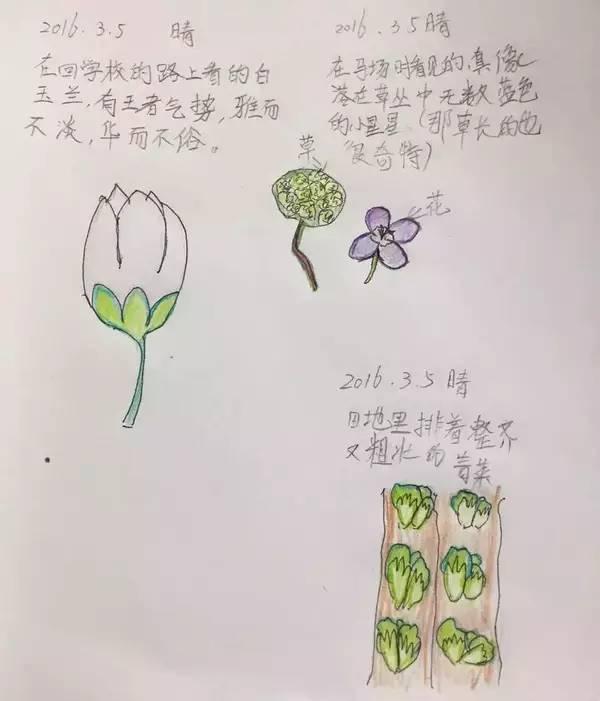 2016.3.5 晴
在回学校的路上看的白
玉兰,有王者气势,雅而
不淡,华而不俗。
2016.3.5 晴
在马场时看见的,真像
落在草丛中无数蓝色
的小星星。(那草长的也
很奇特)
草
花
2016.3.5 晴
田地里排着整齐
又粗壮的青菜